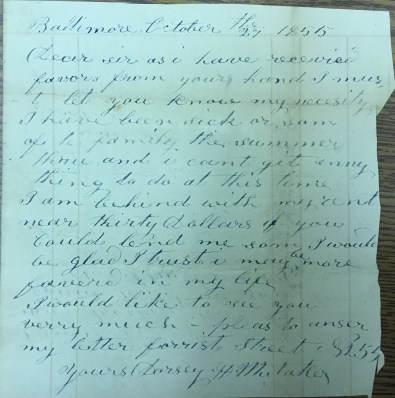 Baltimore October the 27 1855
Dear sir as i have recevied
favors from yours hand I mus
t let you know my necesity
I have been sick or som
of te family the summer
threw and i cant git enny
thing to do at this time
I am behind with my rent
near thirty Dollars if you
Could lend me som I would
be glad I trust i may be more
favored in my life
I would like to see you
verry much - pleas to anser
my letter forrist Street
Yours Dorsey